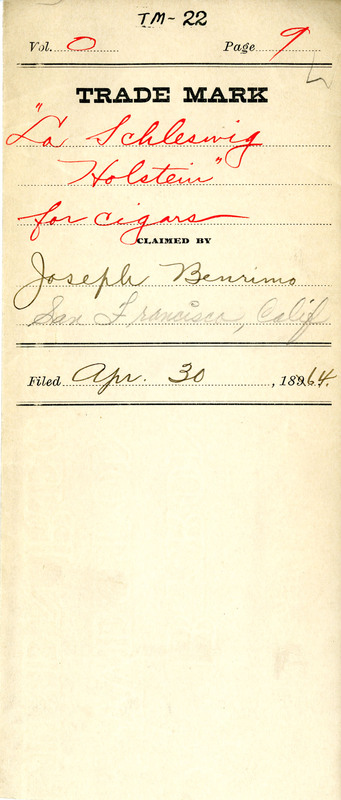 TM-22
Vol. 0 Page 9
TRADE MARK
"La Schleswig
Holstein"
for cigars
CLAIMED BY
Joseph Benrimo
San Francisco, Calif
Filed Apr. 30, 18964.